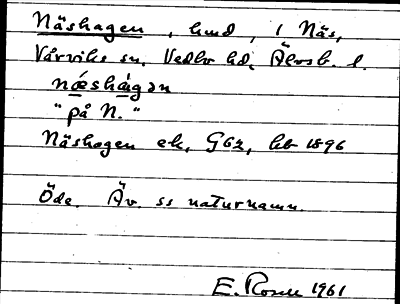 Näshagen, hmd, i Näs,
Vårviks sn, Vedbo hd, Älvsb. l.
nǽshágan
"på N."
Näshagen ek, G62, hb 1896
Öde. Äv. ss naturnamn.
E. Rosell 1961